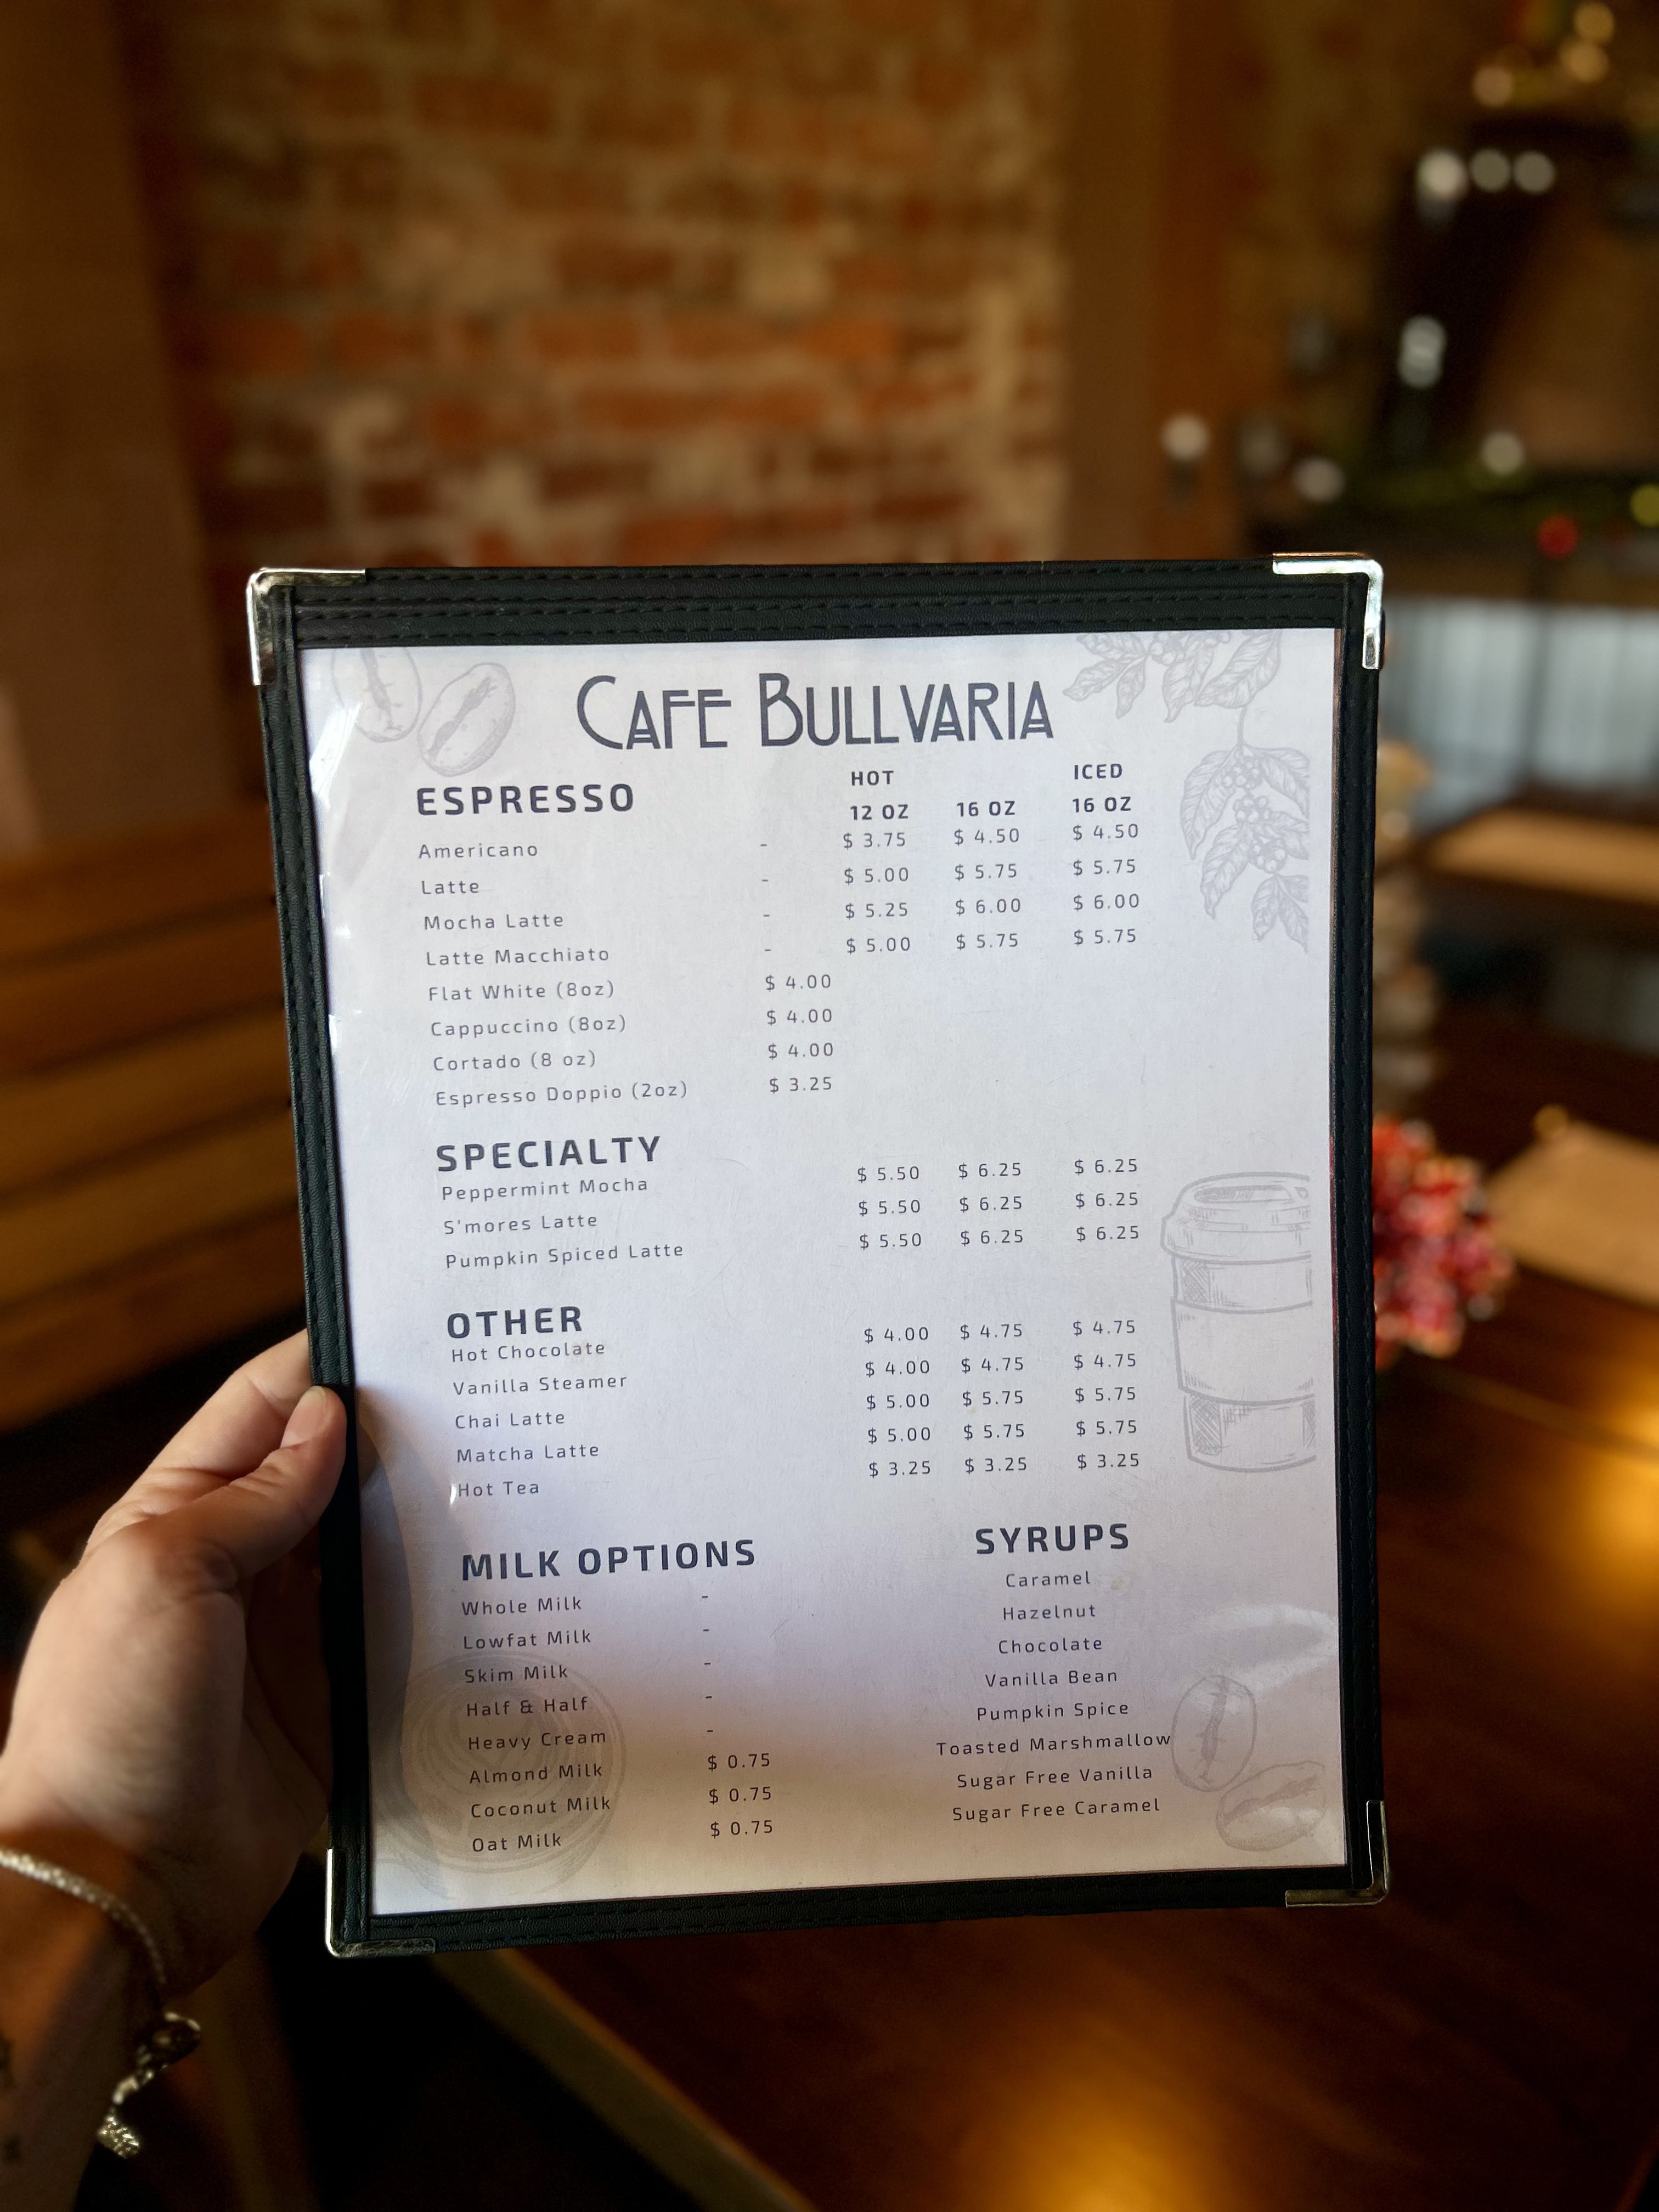 CAFE BULLVARIA
HOT ICED
ESPRESSO 12 OZ 16 OZ 16 OZ
Americano - $ 3.75 $ 4.50 $ 4.50
Latte - $ 5.00 $ 5.75 $ 5.75
Mocha Latte - $ 5.25 $ 6.00 $ 6.00
Latte Macchiato - $ 5.00 $ 5.75 $ 5.75
Flat White (8oz) $ 4.00
Cappuccino (8oz) $ 4.00
Cortado (8 oz) $ 4.00
Espresso Doppio (2oz) $ 3.25
SPECIALTY
Peppermint Mocha $ 5.50 $ 6.25 $ 6.25
S'mores Latte $ 5.50 $ 6.25 $ 6.25
Pumpkin Spiced Latte $ 5.50 $ 6.25 $ 6.25
OTHER
Hot Chocolate $ 4.00 $ 4.75 $ 4.75
Vanilla Steamer $ 4.00 $ 4.75 $ 4.75
Chai Latte $ 5.00 $ 5.75 $ 5.75
Matcha Latte $ 5.00 $ 5.75 $ 5.75
Hot Tea $ 3.25 $ 3.25 $ 3.25
MILK OPTIONS
Whole Milk -
Lowfat Milk -
Skim Milk -
Half & Half -
Heavy Cream -
Almond Milk $ 0.75
Coconut Milk $ 0.75
Oat Milk $ 0.75
SYRUPS
Caramel
Hazelnut
Chocolate
Vanilla Bean
Pumpkin Spice
Toasted Marshmallow
Sugar Free Vanilla
Sugar Free Caramel